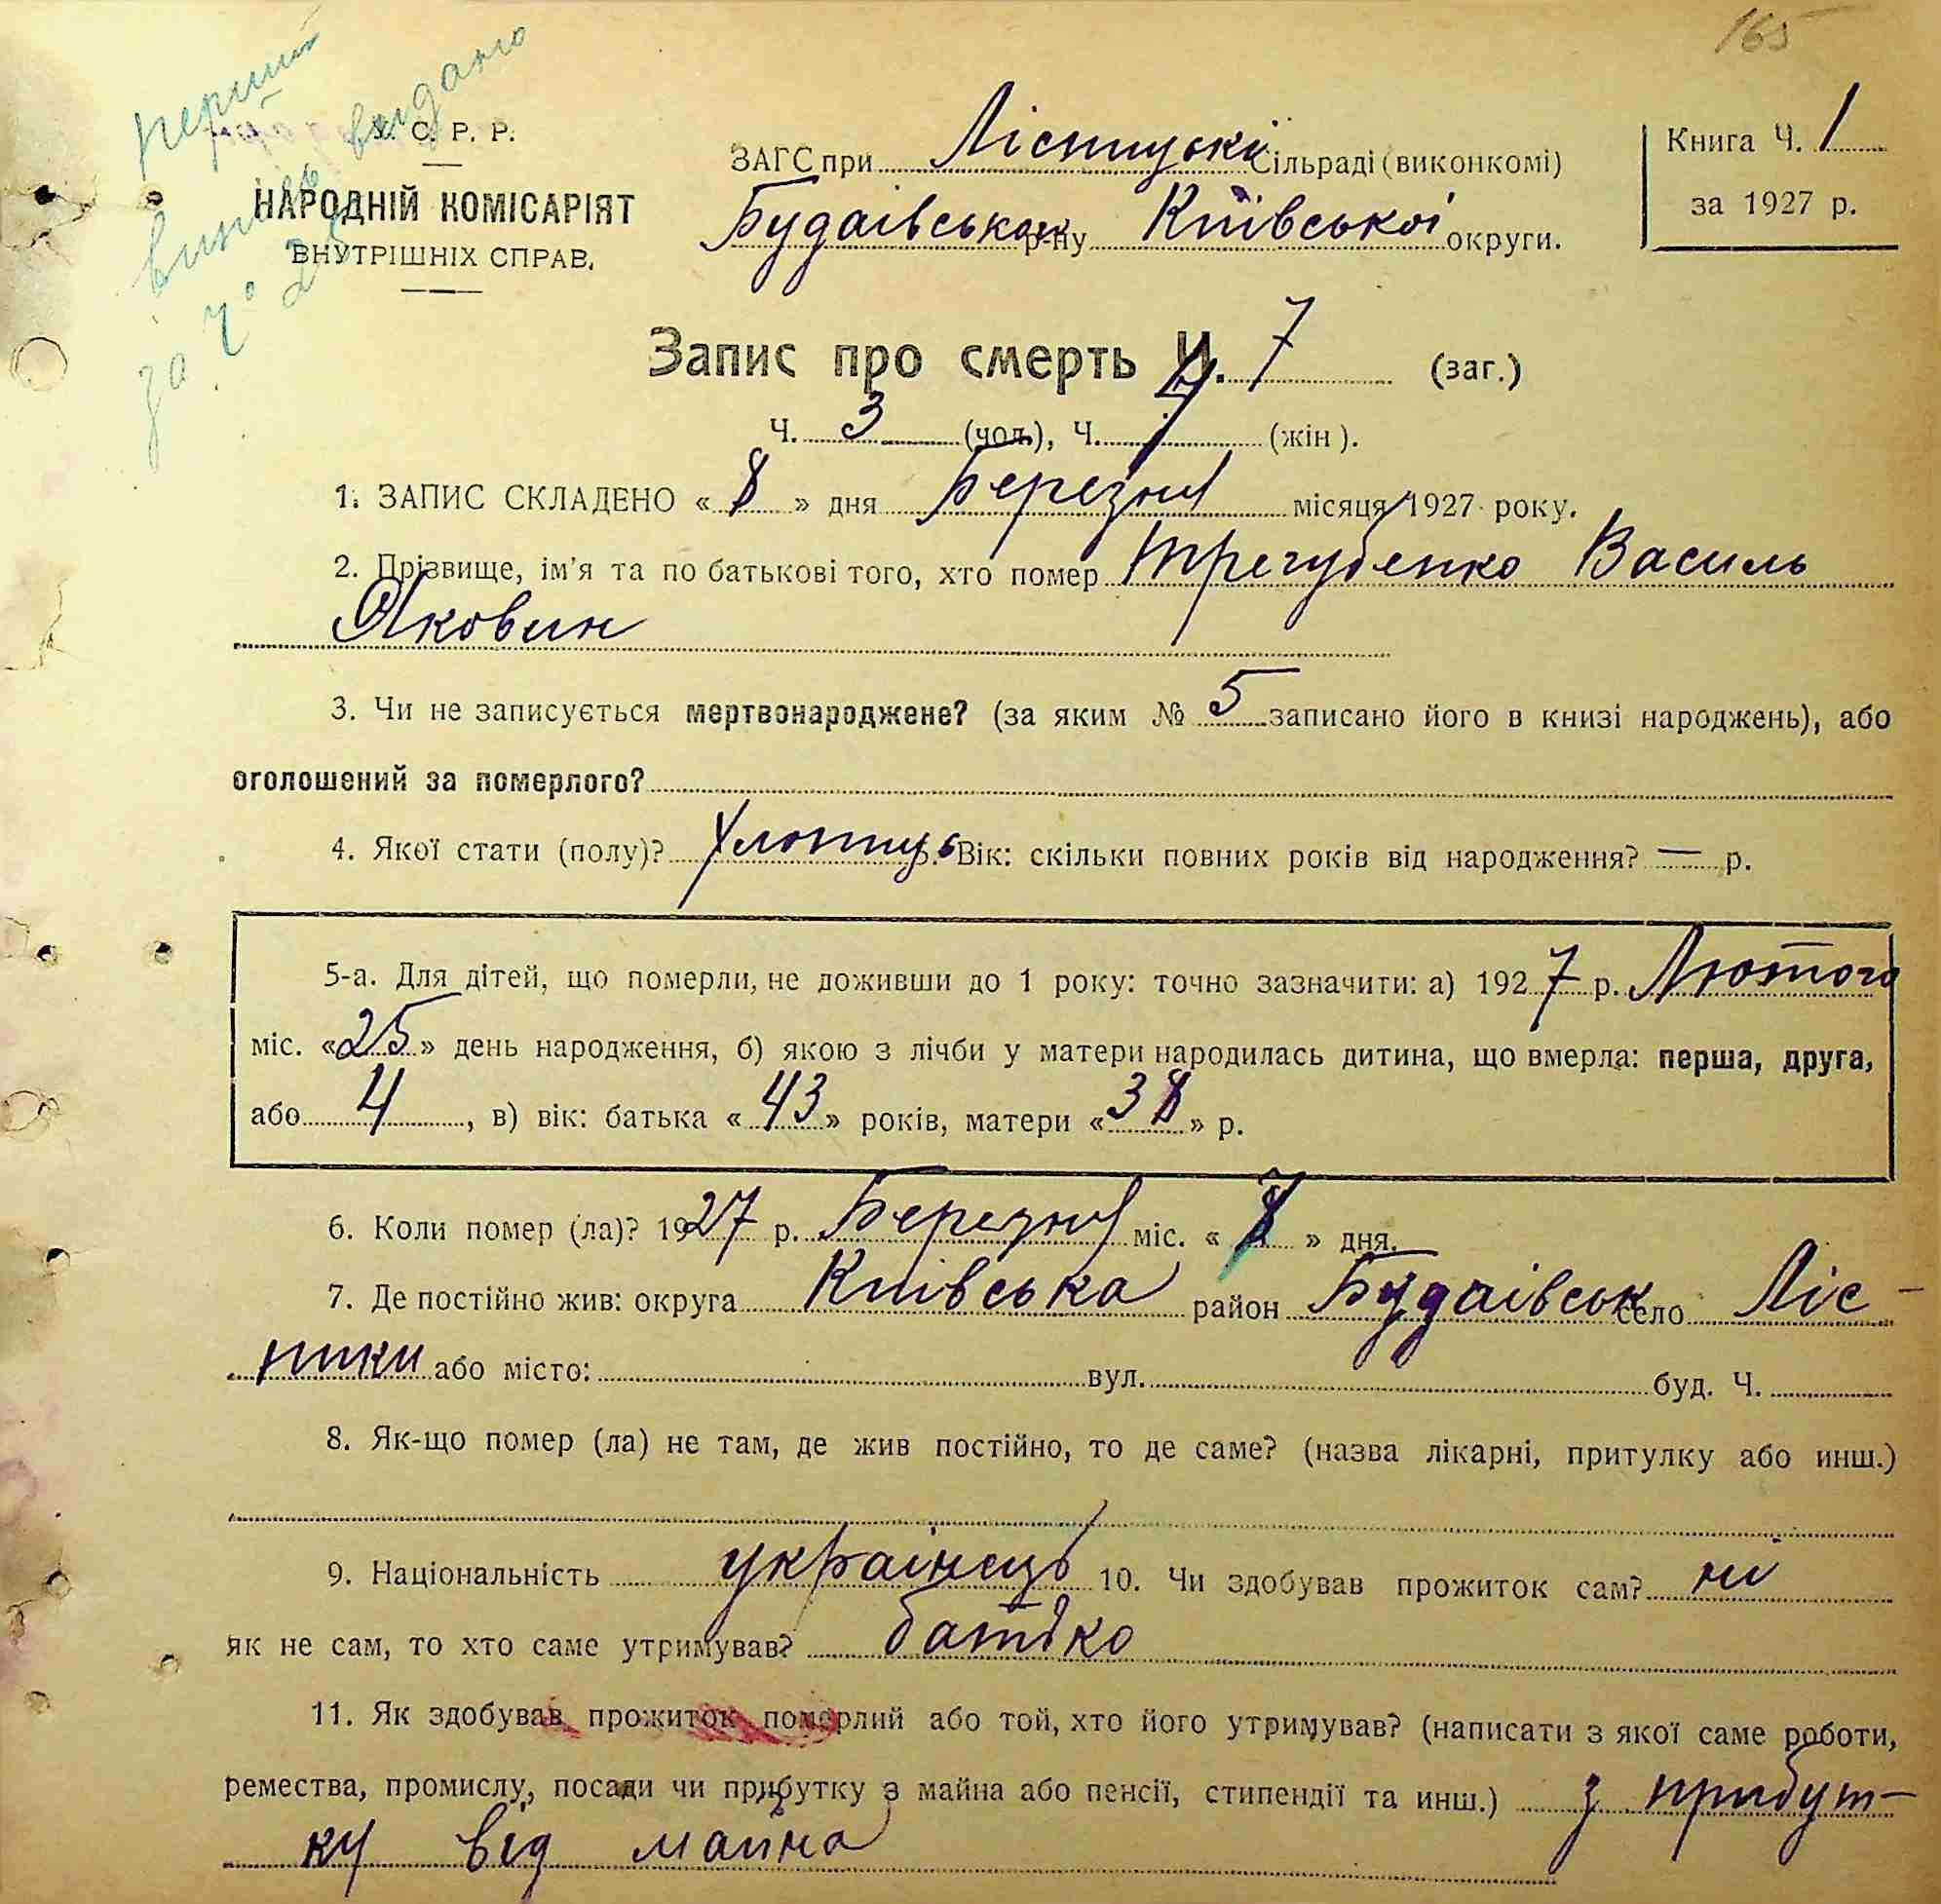 165
перший
видано
за Ч° 2
У. С. Р. Р.
НАРОДНІЙ КОМІСАРІЯТ
ВНУТРІШНІХ СПРАВ.
ЗАГС при Лісницькій Сільраді (виконкомі)
Будаівськом р-ну Київської округи.
Книга Ч. 1
за 1927 р.
Запис про смерть Ч. 7 (заг.)
Ч. 3 (чол.), Ч. (жін).
1. ЗАПИС СКЛАДЕНО « 8 » дня Березня місяця 1927 року.
2. Прізвище, ім'я та по батькові того, хто помер Трегубенко Василь
Яковин
3. Чи не записується мертвонароджене? (за яким № 5 записано його в книзі народжень), або
оголошений за померлого?
4. Якої стати (полу)? Хлопець 5. Вік: скільки повних років від народження? — р.
5-а. Для дітей, що померли, не доживши до 1 року: точно зазначити: а) 1927 р. Лютого
міс. «25» день народження, б) якою з лічби у матери народилась дитина, що вмерла: перша, друга,
або 4, в) вік: батька «43» років, матери «38» р.
6. Коли помер (ла)? 1927 р. Березня міс. « » дня.
7. Де постійно жив: округа Київська район Будаівськ село Ліс-
ники або місто: вул. буд. Ч.
8. Як-що помер (ла) не там, де жив постійно, то де саме? (назва лікарні, притулку або инш.)
9. Національність українець 10. Чи здобував прожиток сам? ні
як не сам, то хто саме утримував? батько
11. Як здобував прожиток померлий або той, хто його утримував? (написати з якої саме роботи,
ремества, промислу, посади чи прибутку з майна або пенсії, стипендії та инш.) з прибут-
ку від майна